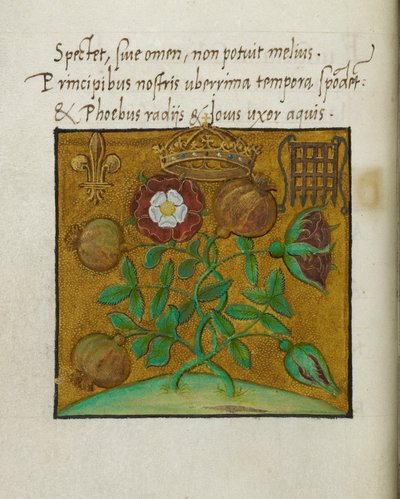 Spectet, siue omen, non potuit melius.
Principibus nostris vberrima tempora spōdēt:
& Phoebus radijs & Iouis vxor aquis.